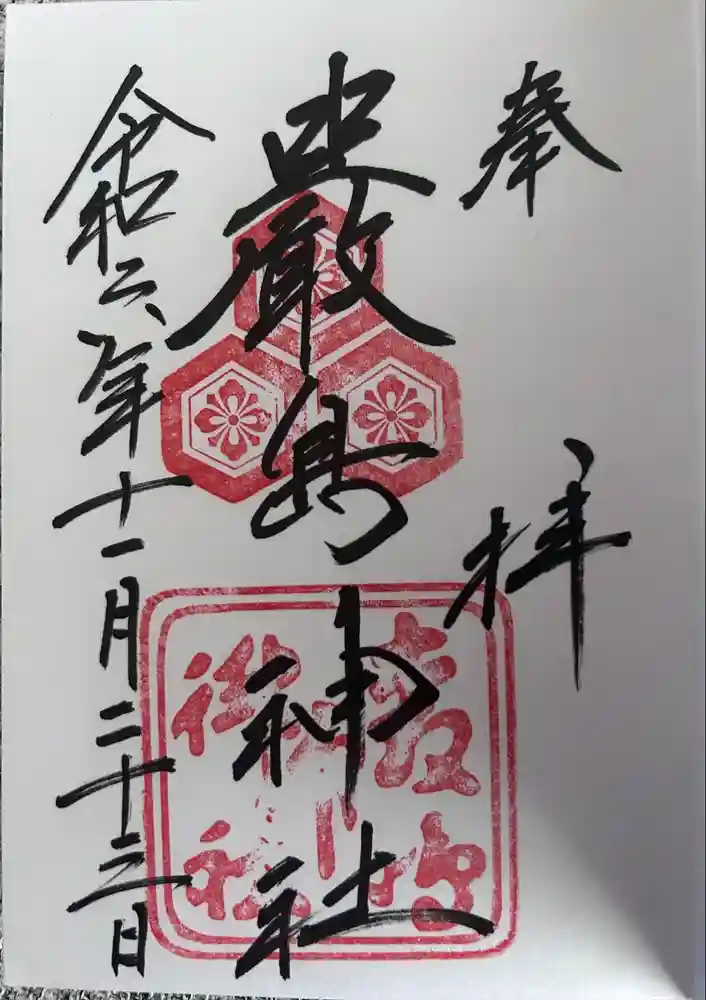 奉拝
嚴島神社
令和六年十一月二十三日